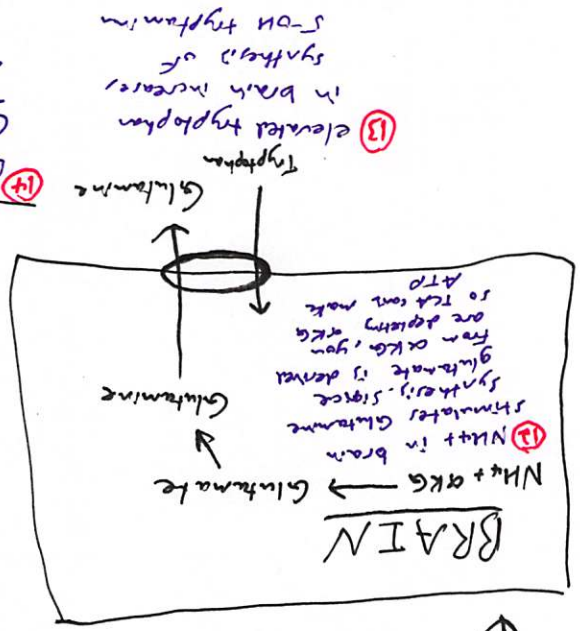 BRAIN
NH4 + αKG → Glutamate
Glutamine
⑫ NH4+ in brain
stimulates Glutamine
synthesis. Since
glutamate is derived
from αKG, you
are depleting αKG
so TCA can make
ATP
Tryptophan
Glutamine
⑬ elevated tryptophan
in brain increases
synthesis of
5-OH tryptamin
⑭